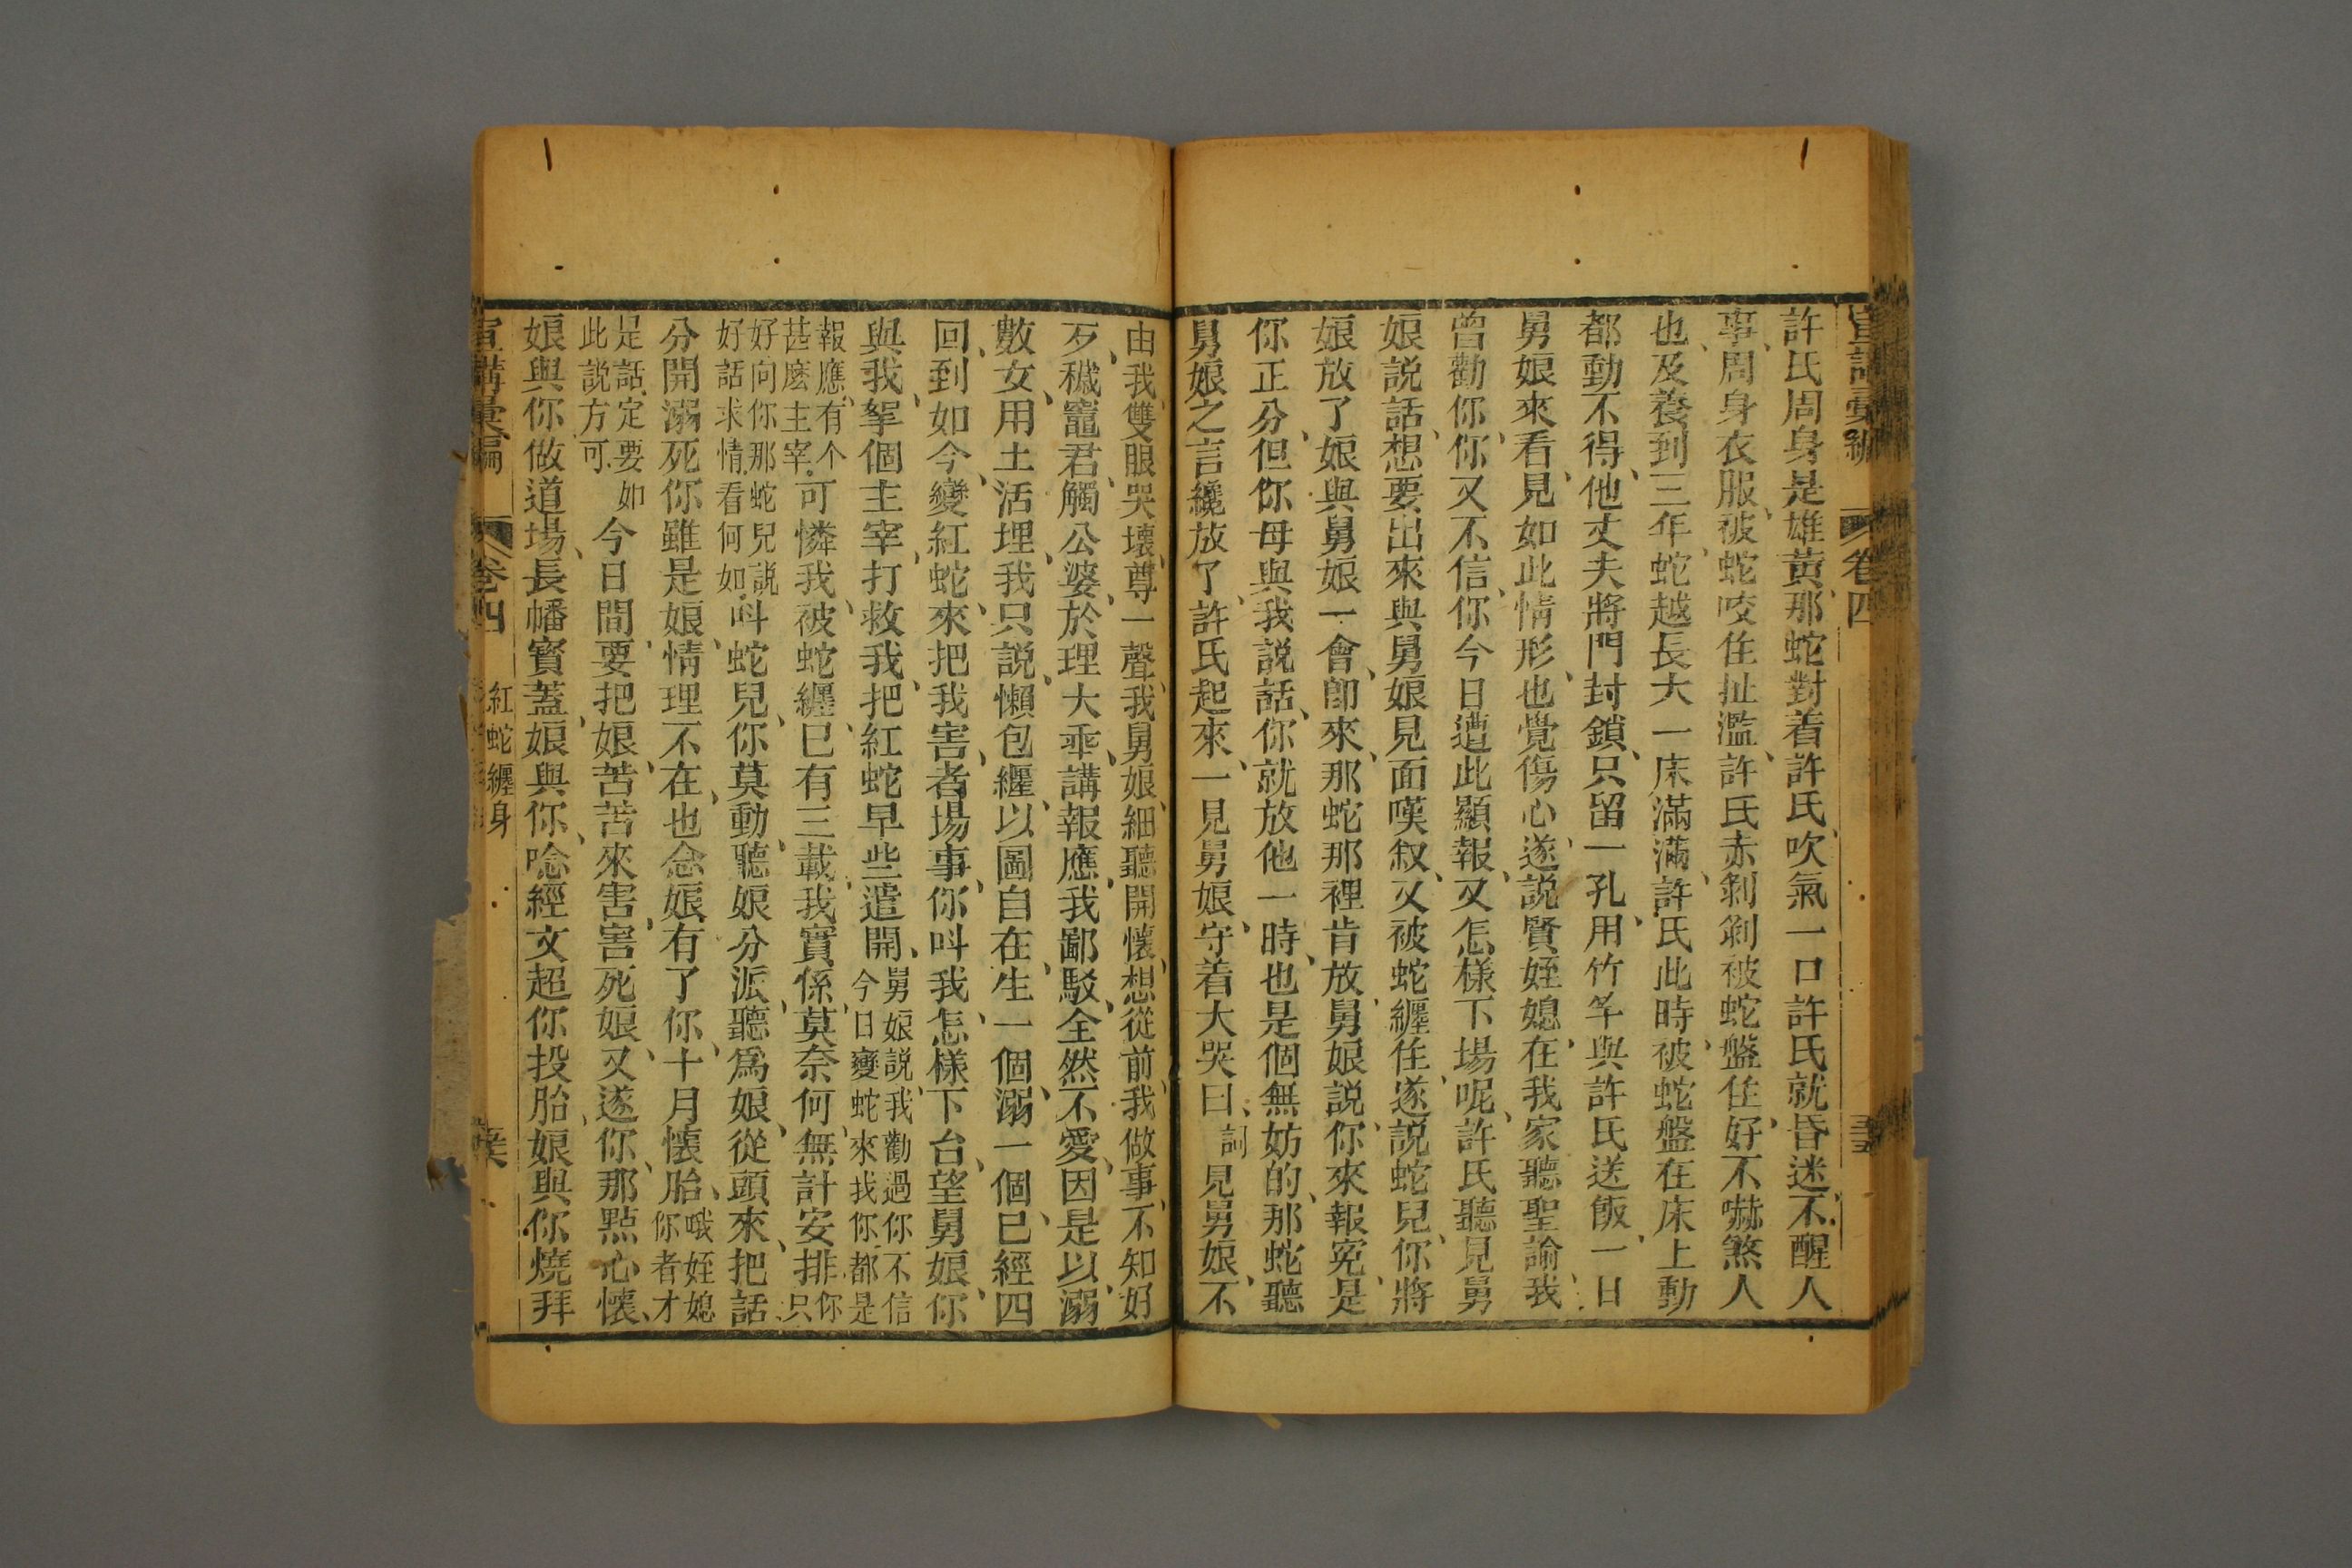 宣講彙編 卷四
許氏周身是雄黃、那蛇對着許氏、吹氣一口許氏就昏迷、不醒人
事、周身衣服、被蛇咬住扯濫、許氏赤剝剝被蛇盤住、好不嚇煞人
也、及養到三年、蛇越長大一床滿滿、許氏此時、被蛇盤在床上動
都動不得、他丈夫將門封鎖、只留一孔、用竹竿與許氏送飯、一日
舅娘來看、見如此情形、也覺傷心、遂說賢姪媳、在我家聽聖諭、我
曾勸你、你又不信、你今日遭此顯報、又怎樣下場呢、許氏聽見舅
娘說話、想要出來與舅娘見面嘆叙、又被蛇纏住、遂說蛇兒、你將
娘放了、娘與舅娘一會、卽來、那蛇那裡肯放、舅娘說、你來報寃、是
你正分、但你母與我說話、你就放他一時、也是個無妨的、那蛇聽
舅娘之言纔放了、許氏起來、一見舅娘、守着大哭曰、詞見舅娘、不
由我雙眼哭壞、尊一聲、我舅娘、細聽開懷、想從前、我做事、不知好
歹、穢竈君、觸公婆、於理大乖、講報應、我鄙駁、全然不愛、因是以、溺
數女、用土活埋、我只說、懶包纏、以圖自在、生一個、溺一個、已經四
回、到如今、變紅蛇、來把我害、者場事、你呌我、怎樣下台、望舅娘、你
與我、拏個主宰、打救我、把紅蛇早些遣開、舅娘說、我勸過你不信
今日變蛇來找你都是
報應、有个
甚麽主宰、可憐我、被蛇纏、已有三載、我實係、莫奈何、無計安排、你
只
好向你那蛇兒說
好話求情、看何如、呌蛇兒、你莫動、聽娘分派、聽爲娘、從頭來、把話
分開、溺死你雖是娘、情理不在、也念娘、有了你、十月懷胎、哦姪媳
你者才
是話、定要如
此說方可、今日間、要把娘、苦苦來害、害死娘、又遂你、那點心懷、
娘與你做道場、長幡寶蓋、娘與你、唸經文超你投胎、娘與你燒拜
宣講彙編 卷四 紅蛇纏身